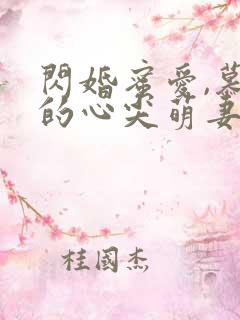 閃婚蜜愛,慕
的心尖萌妻
桂國杰